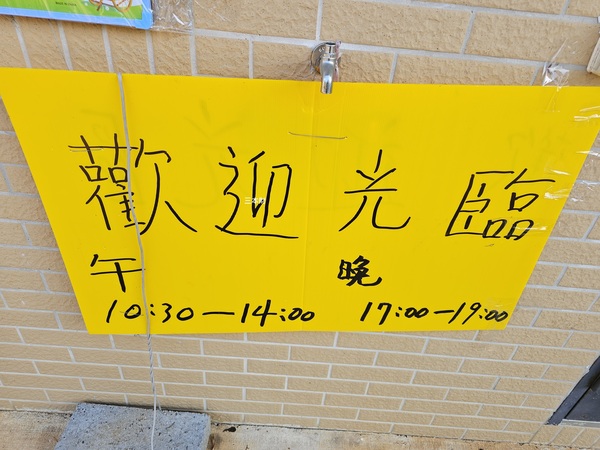 歡迎光臨
午 晚
10:30—14:00 17:00—19:00